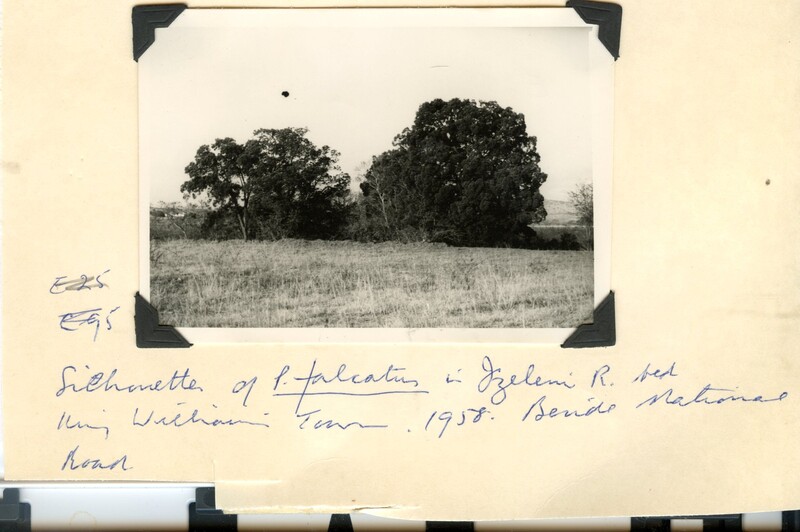 E25
E95
Silhouettes of P. falcatus in Izeleni R. bed
King William's Town. 1958. Beside National
Road.